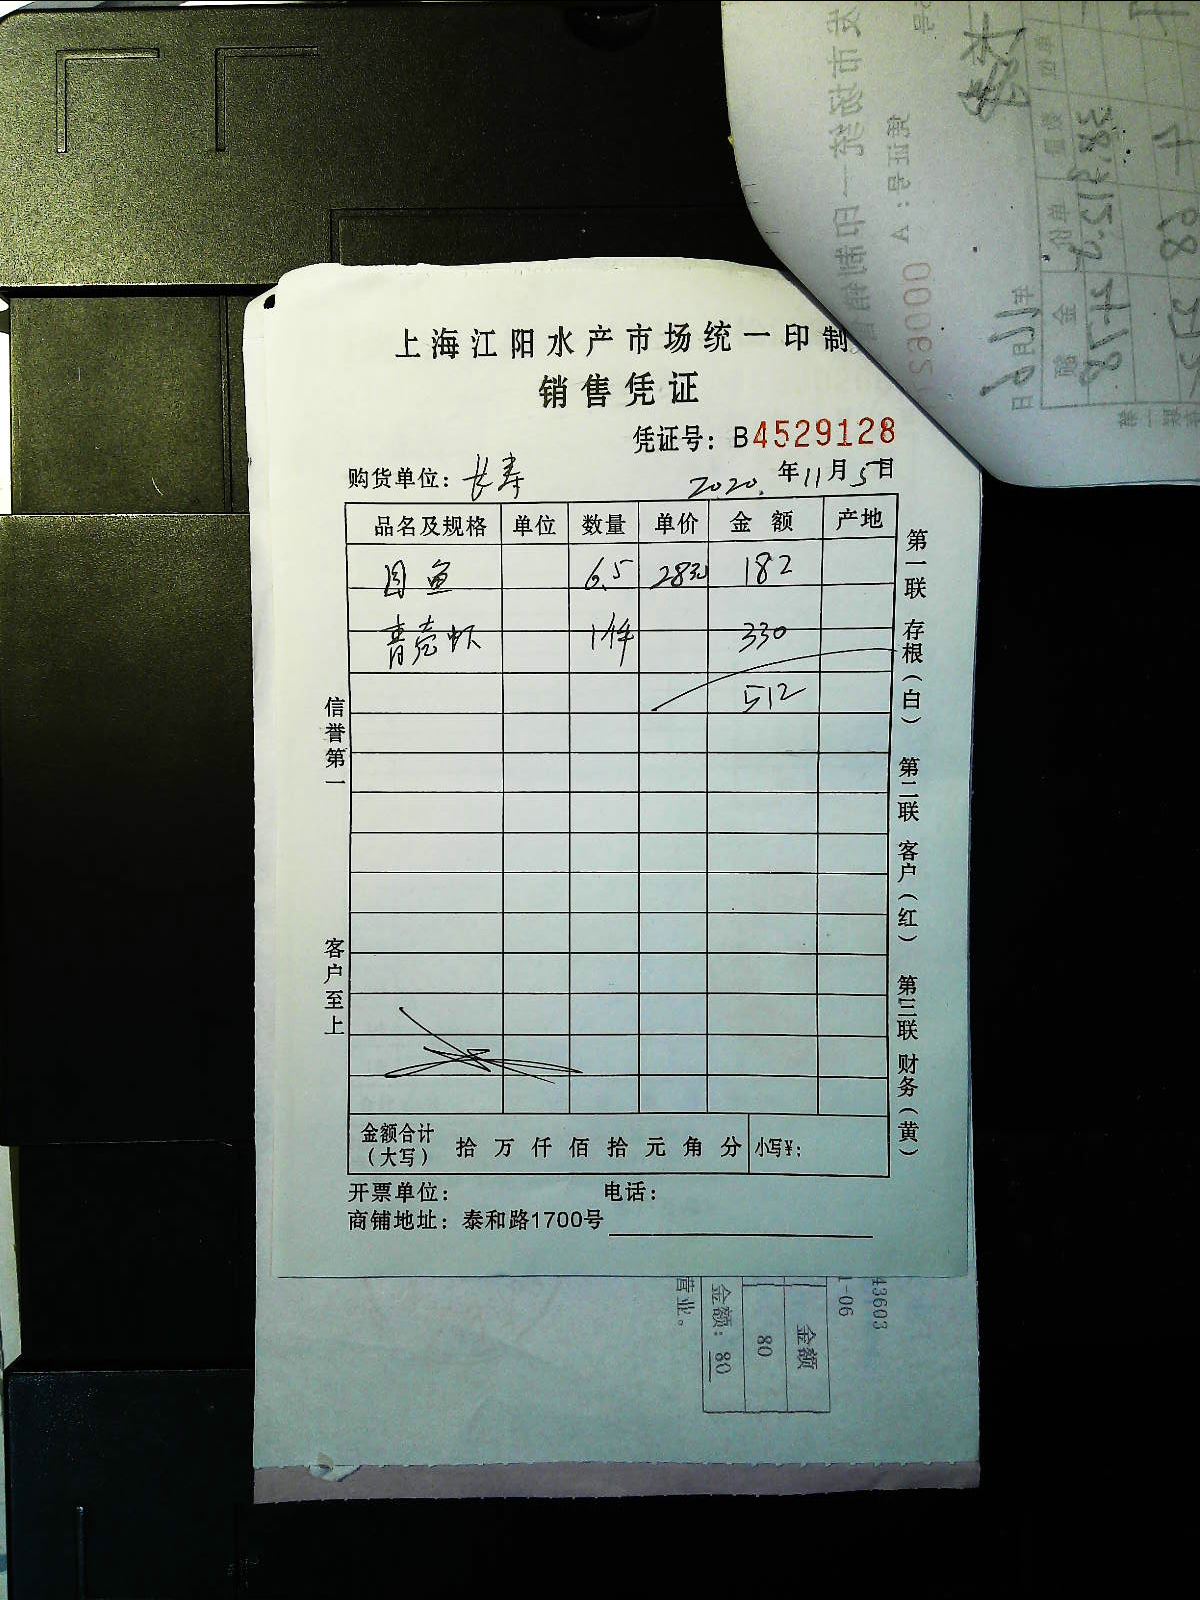 上海江阳水产市场统一印制
销售凭证
凭证号：B4529128
购货单位：长寿 2020.年11月5日
品名及规格 单位 数量 单价 金额 产地
目鱼 6.5 28元 182
青壳虾 1件 330
512
信誉第一
客户至上
第一联 存根（白） 第二联 客户（红） 第三联 财务（黄）
金额合计（大写） 拾 万 仟 佰 拾 元 角 分 小写¥：
开票单位： 电话：
商铺地址：泰和路1700号
43603
1-06
金额
80
金额：80
营业。